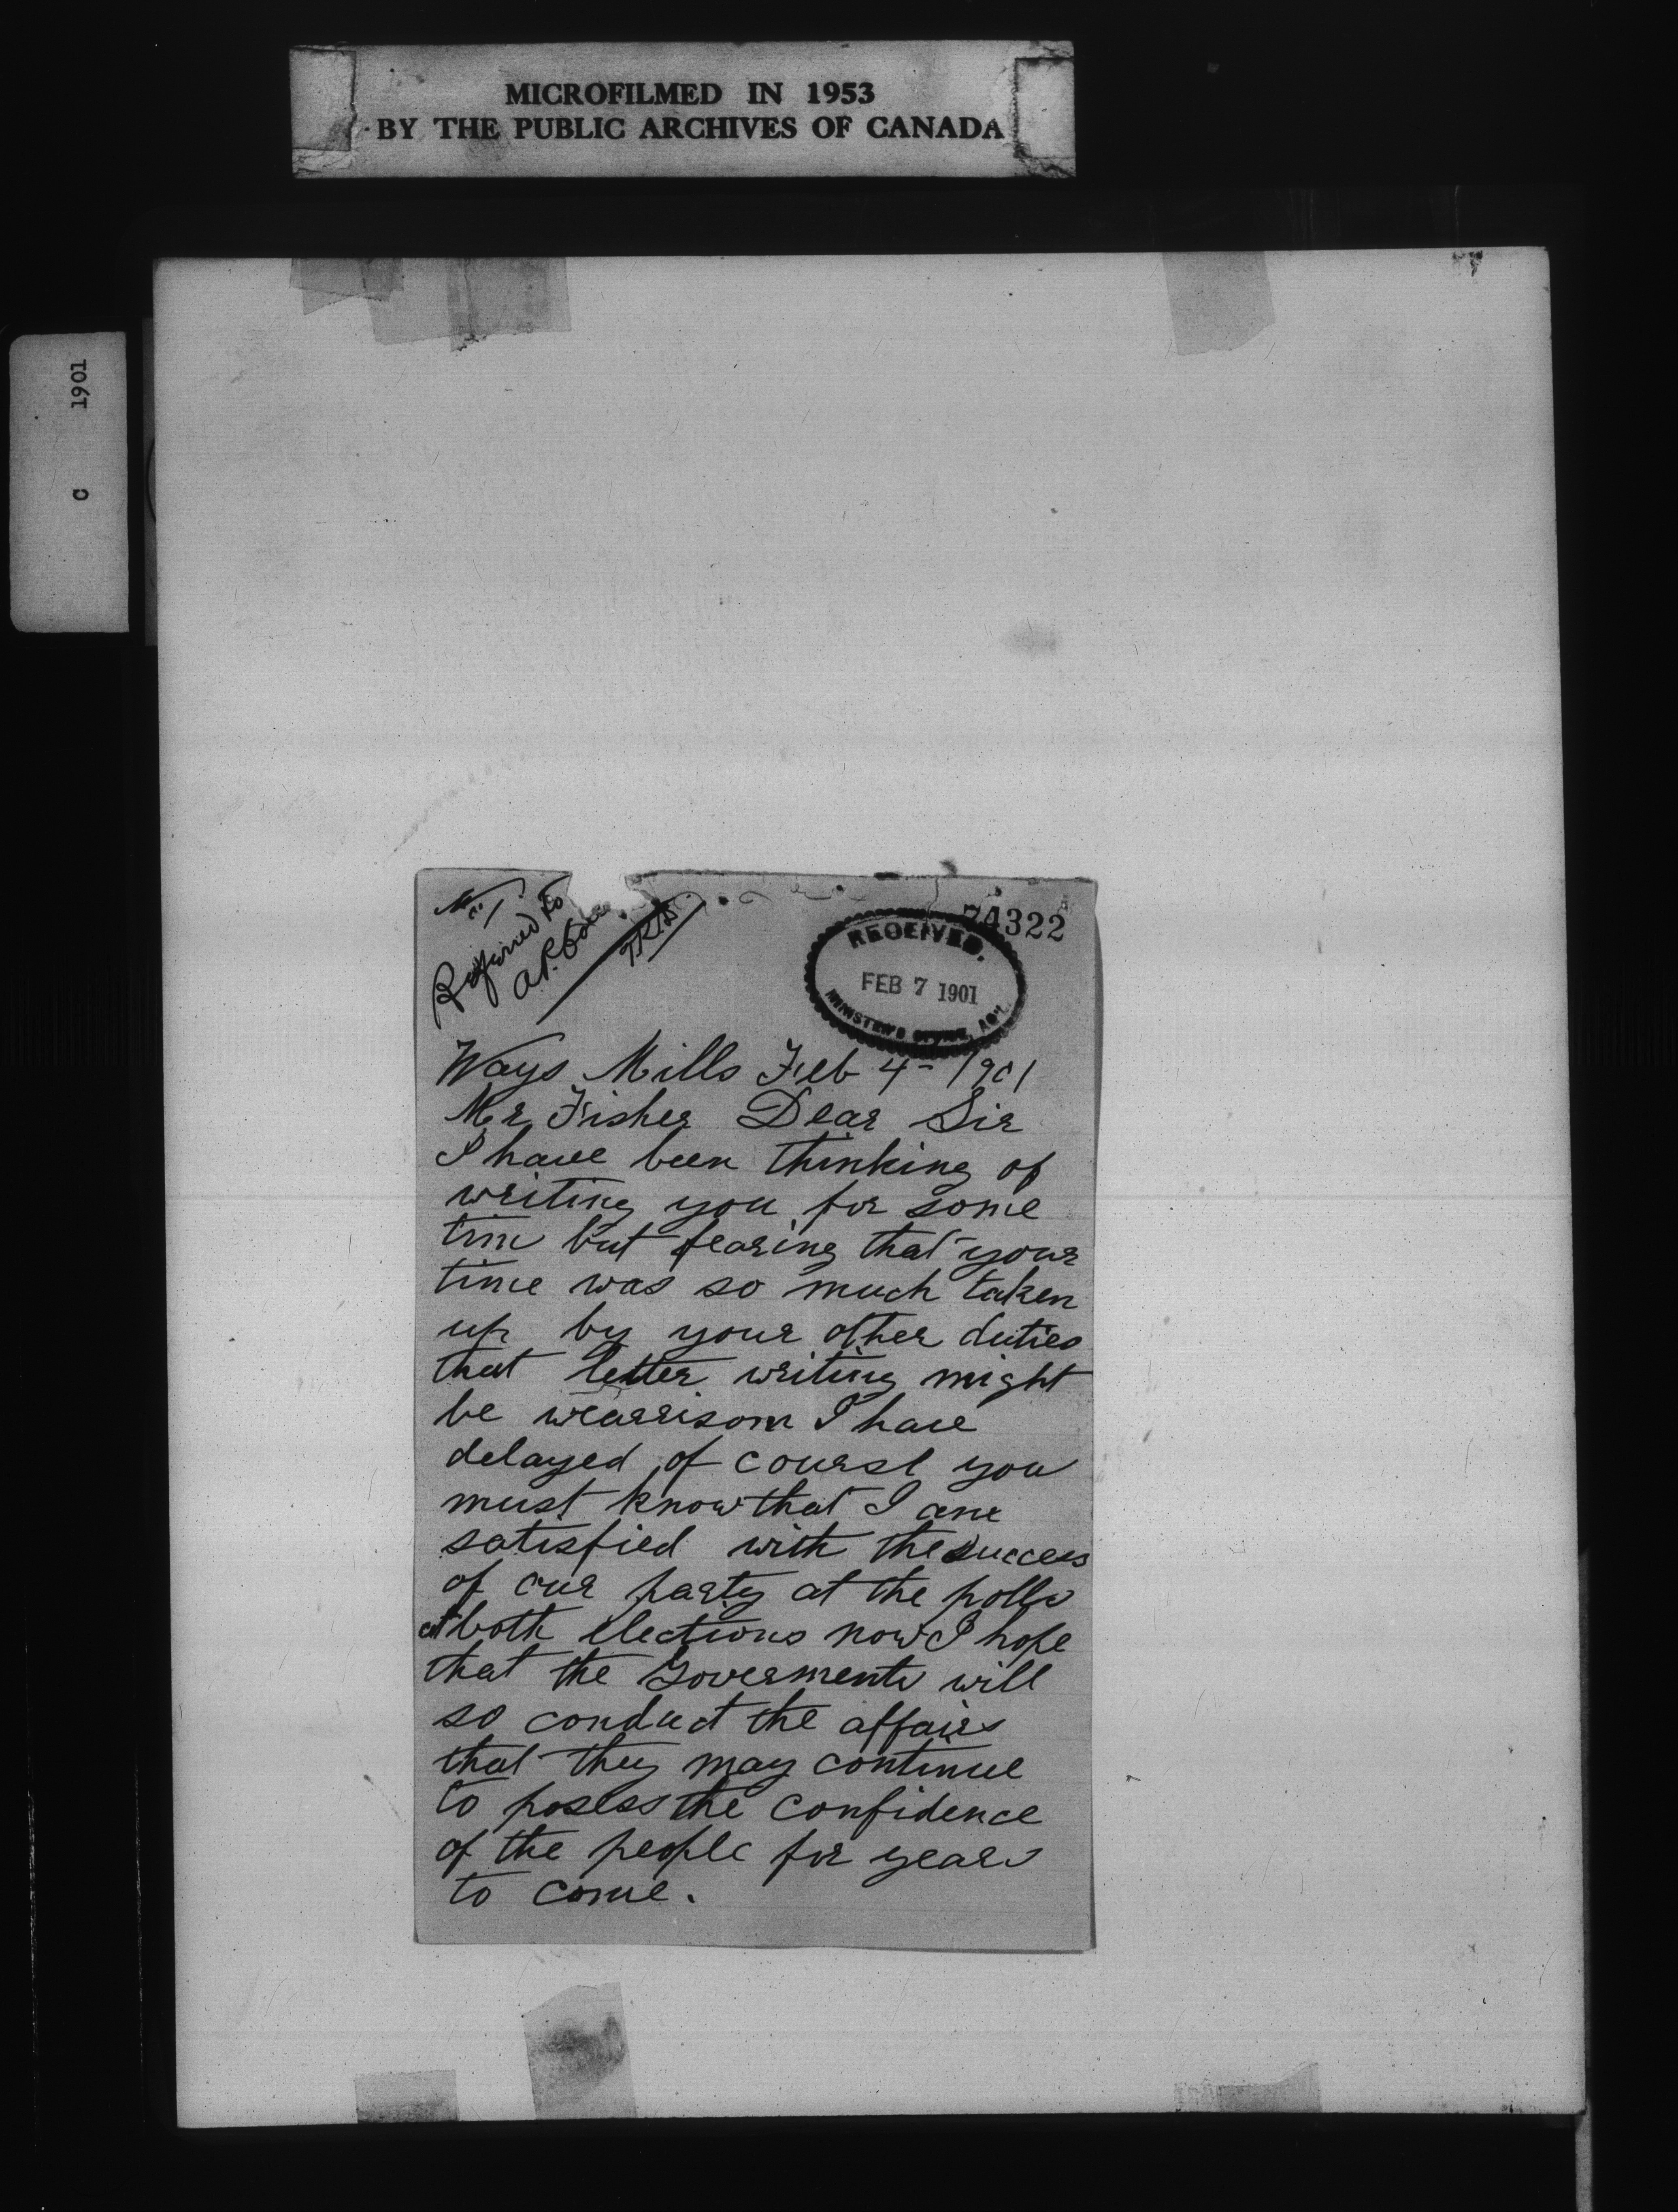 MICROFILMED IN 1953
BY THE PUBLIC ARCHIVES OF CANADA
C 1901
Referred to
74322
RECEIVED.
FEB 7 1901
MINISTER'S OFFICE, AGR.
Ways Mills Feb 4 - 1901
Mr Fisher Dear Sir
I have been thinking of
writing you for some
tim but fearing that your
time was so much taken
up by your other duties
that letter writing might
be wearrisom I have
delayed, of course you
must know that I am
satisfied with the success
of our party at the polls
at both elections now I hope
that the Goverments will
so conduct the affairs
that they may continue
to posess the confidence
of the people for years
to come.